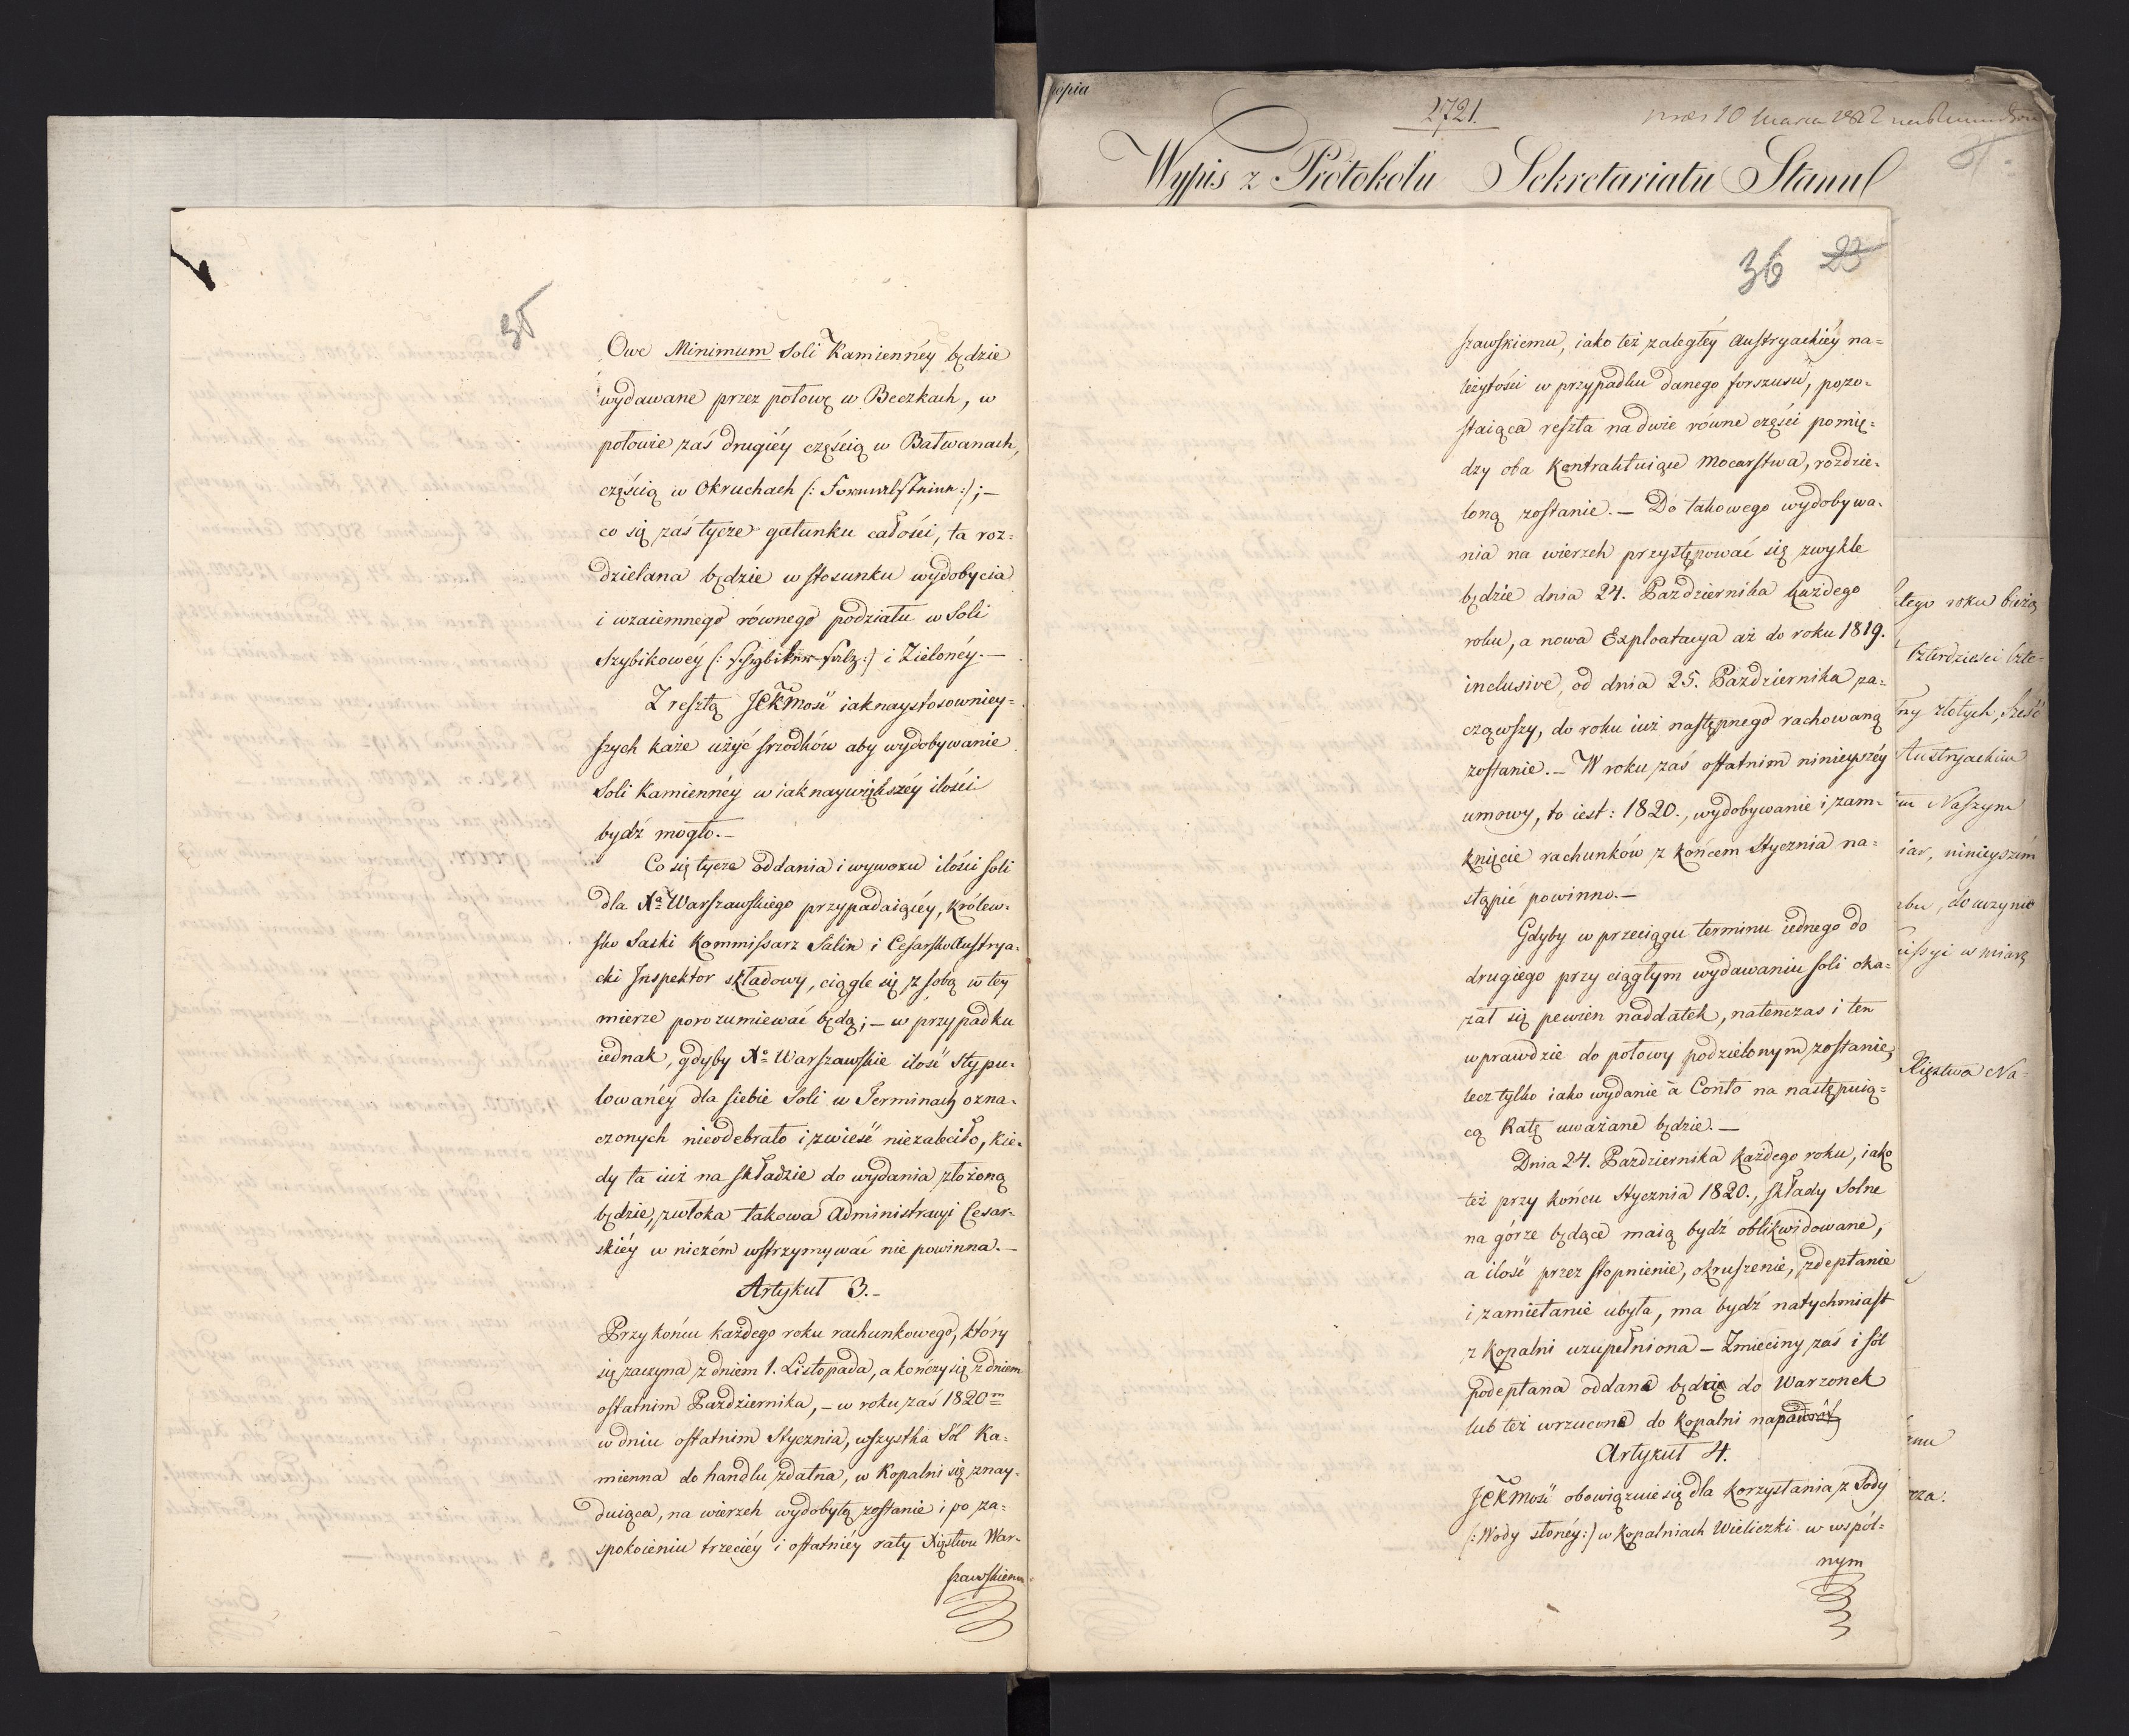 35
Owe Minimum Soli Kamiennéy będzie
wydawane przez połowę w Beczkach, w
połowie zaś drugiéy częścią w Bałwanach,
częścią w Okruchach (: Formalsteine :); —
co się zaś tycze gatunku całości, ta roz=
dzielana będzie w stosunku wydobycia
i wzaiemnego równego podziału w Soli
Szybikowéy (: Schybiker-Salz :) i Zieloney. —
Z resztą JCKMość iaknaystosowniey=
szych każe użyć srzodków aby wydobywanie
Soli Kamiennéy w iaknaywiększéy ilości
bydź mogło. —
Co się tycze oddania i wywozu ilości soli
dla Xa Warszawskiego przypadaiącéy, Królew=
sko Saski Kommissarz Salin i Cesarsko Austrya=
cki Inspektor składowy, ciągle się z sobą w tey
mierze porozumiewać będą; — w przypadku
iednak, gdyby Xo Warszawskie ilość stypu=
lowanéy dla siebie Soli w Terminach ozna=
czonych nieodebrało i zwieść niezaleciło, kie=
dy ta iuż na składzie do wydania złożoną
będzie, zwłoka takowa Administracyi Cesar=
skiéy w niczém wstrzymywać nie powinna. —
Artykuł 3. —
Przy końcu każdego roku rachunkowego, który
się zaczyna z dniem 1. Listopada, a kończy się z dniem
ostatnim Października, — w roku zaś 1820m
w dniu ostatnim Stycznia, wszystka Sól Ka=
mienna do handlu zdatna, w Kopalni się znay=
duiąca, na wierzch wydobytą zostanie i po za=
spokoieniu trzeciéy i ostatniéy raty Xięstwu War=
szawskiemu
kopia
2721.
10 Marca 1812
Wypis z Protokołu Sekretariatu Stanu
36 23
szawskiemu, iako też zaległéy Austryackiéy na=
leżytości w przypadku danego forszusu, pozo=
staiąca reszta na dwie równe części pomię=
dzy oba Kontraktuiące Mocarstwa, rozdzie=
loną zostanie. — Do takowego wydobywa=
nia na wierzch przystępować się zwykle
będzie dnia 24. Października każdego
roku, a nowa Exploatacya aż do roku 1819.
inclusive, od dnia 25. Października za=
cząwszy, do roku iuż następnego rachowaną
zostanie. — W roku zaś ostatnim ninieyszéy
umowy, to iest: 1820., wydobywanie i zam=
knięcie rachunków z końcem Stycznia na=
stąpić powinno. —
Gdyby w przeciągu terminu iednego do
drugiego przy ciągłym wydawaniu soli oka=
zał się pewien naddatek, natenczas i ten
wprawdzie do połowy podzielonym zostanie,
lecz tylko iako wydanie à Conto na następuią=
cą Ratę uważane będzie. —
Dnia 24. Października każdego roku, iako
też przy końcu Stycznia 1820., składy Solne
na górze będące maią bydź oblikwidowane,
a ilość przez stopnienie, okruszenie, zdeptanie
i zamietanie ubyła, ma bydź natychmiast
z kopalni uzupełniona — Zmieciny zaś i sól
podeptana oddana będzie do Warzonek
lub też wrzucona do kopalni napowrót
Artykuł 4.
JCKMość obowiązuie się dla korzystania z Sody
(: Wody słonéy :) w kopalniach Wieliczki w wspól=
nym
tego roku bieżą
Czterdzieści Czte=
ny złotych, Sześć
Austryackim
im Naszym
iar, ninieyszém
rbu, do uczynie
issyi w miarę
Xięztwa Na
anu
rza.